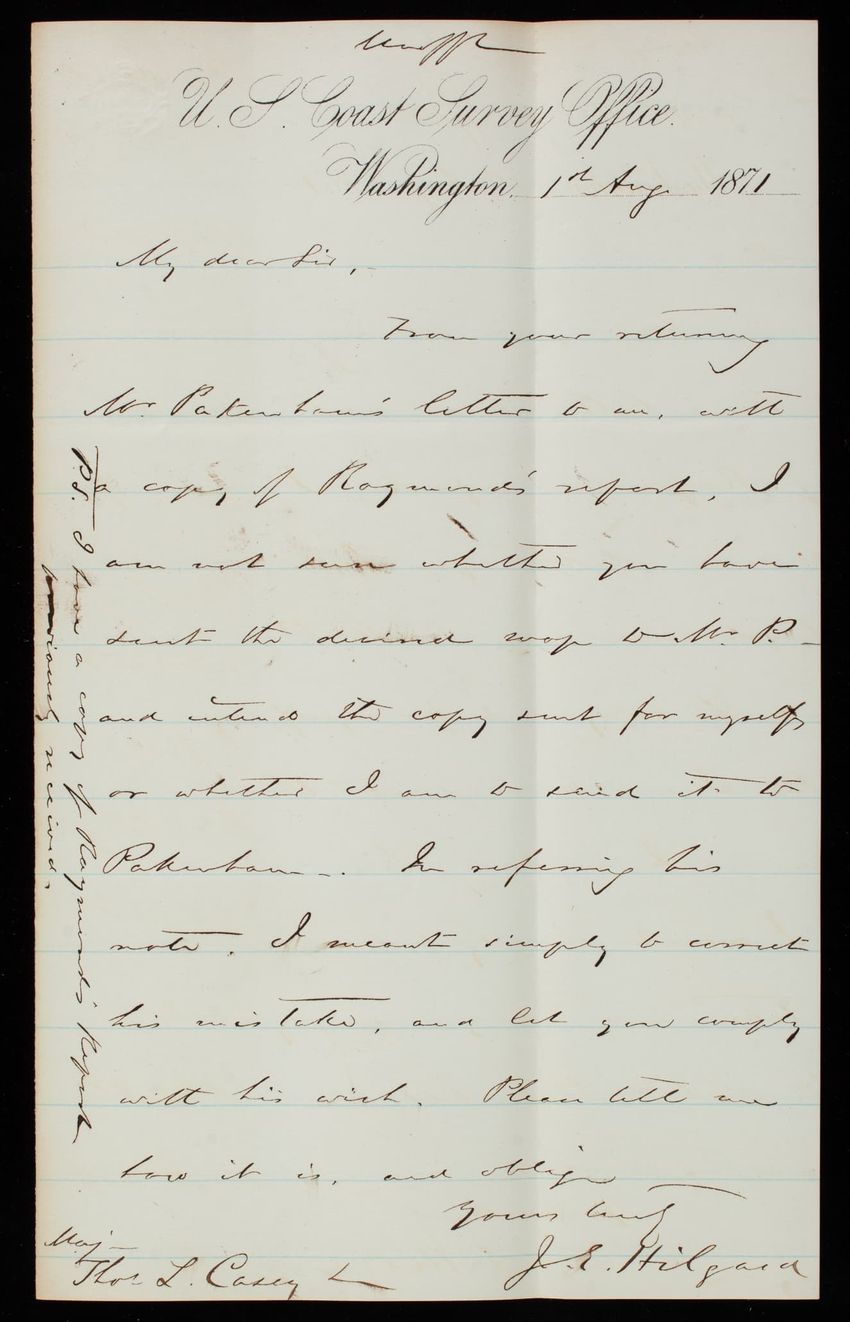 Unoff
U. S. Coast Survey Office.
Washington, 1st Aug 1871
My dear Sir,
From your returning
Mr. Pakenham's letter to me, with
a copy of Raymond's report, I
am not sure whether you have
sent the desired map to Mr. P.
and intend the copy sent for myself,
or whether I am to send it to
Pakenham. In referring his
note, I meant simply to correct
his mistake, and let you comply
with his wish. Please tell me
how it is, and oblige
Yours truly
J. E. Hilgard
Maj
Thos L. Casey
P.S. I have a copy of Raymond's Report
previously received.